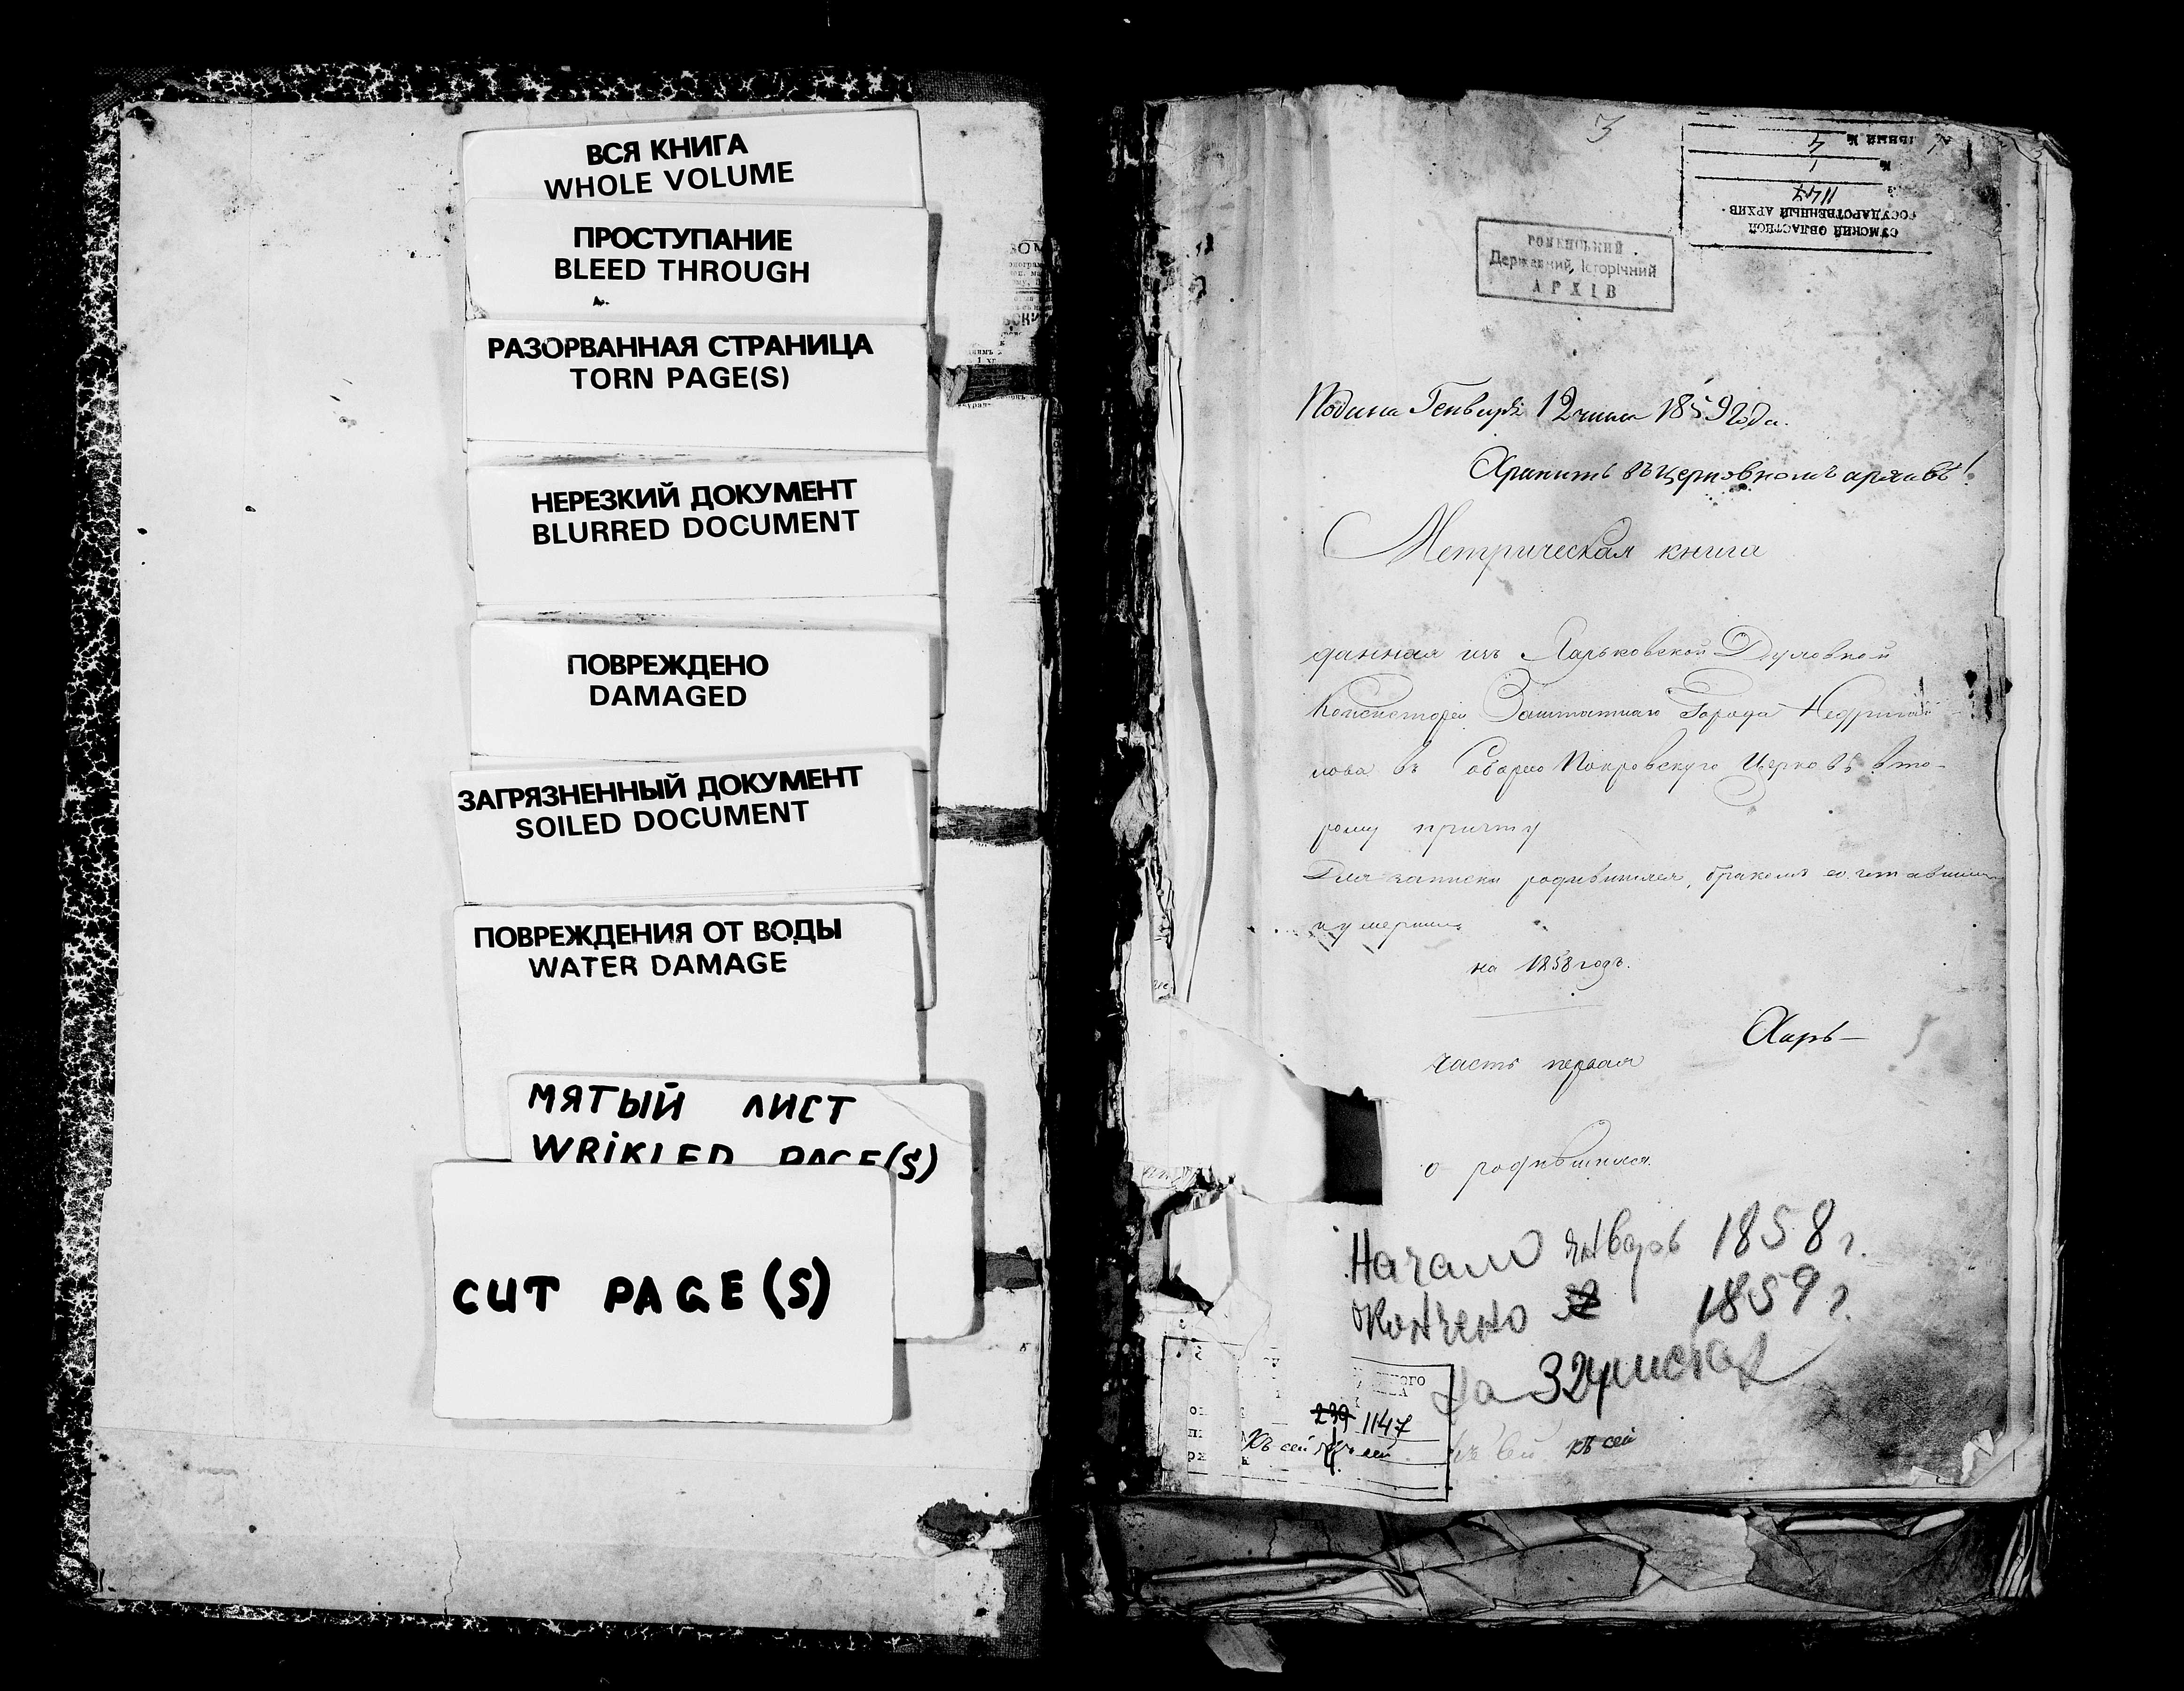 ВСЯ КНИГА
WHOLE VOLUME
ПРОСТУПАНИЕ
BLEED THROUGH
РАЗОРВАННАЯ СТРАНИЦА
TORN PAGE(S)
НЕРЕЗКИЙ ДОКУМЕНТ
BLURRED DOCUMENT
ПОВРЕЖДЕНО
DAMAGED
ЗАГРЯЗНЕННЫЙ ДОКУМЕНТ
SOILED DOCUMENT
ПОВРЕЖДЕНИЯ ОТ ВОДЫ
WATER DAMAGE
МЯТЫЙ ЛИСТ
WRIKLED PAGE(S)
CUT PAGE(S)
3
СУМСКИЙ ОБЛАСТНОЙ
ГОСУДАРСТВЕННЫЙ АРХИВ
1147
№ 1
РОМЕНСЬКИЙ
Державний Історічний
АРХІВ
Подана Генваря 12 1859 года.
Хранить въ церковномъ архивѣ!
Метрическая книга
данная изъ Харьковской Духовной
Консисторіи Заштатнаго Города Недригай
лова въ Соборно Покровскую Церковь вто-
рому причту
Для записки родившихся, бракомъ сочетавшихся
и умершихъ
на 1858 годъ.
Харь-
часть первая
о родившихся
Начато январь 1858 г.
окончено 1859 г.
На 324 листах
239 1147
къ сей
къ сей